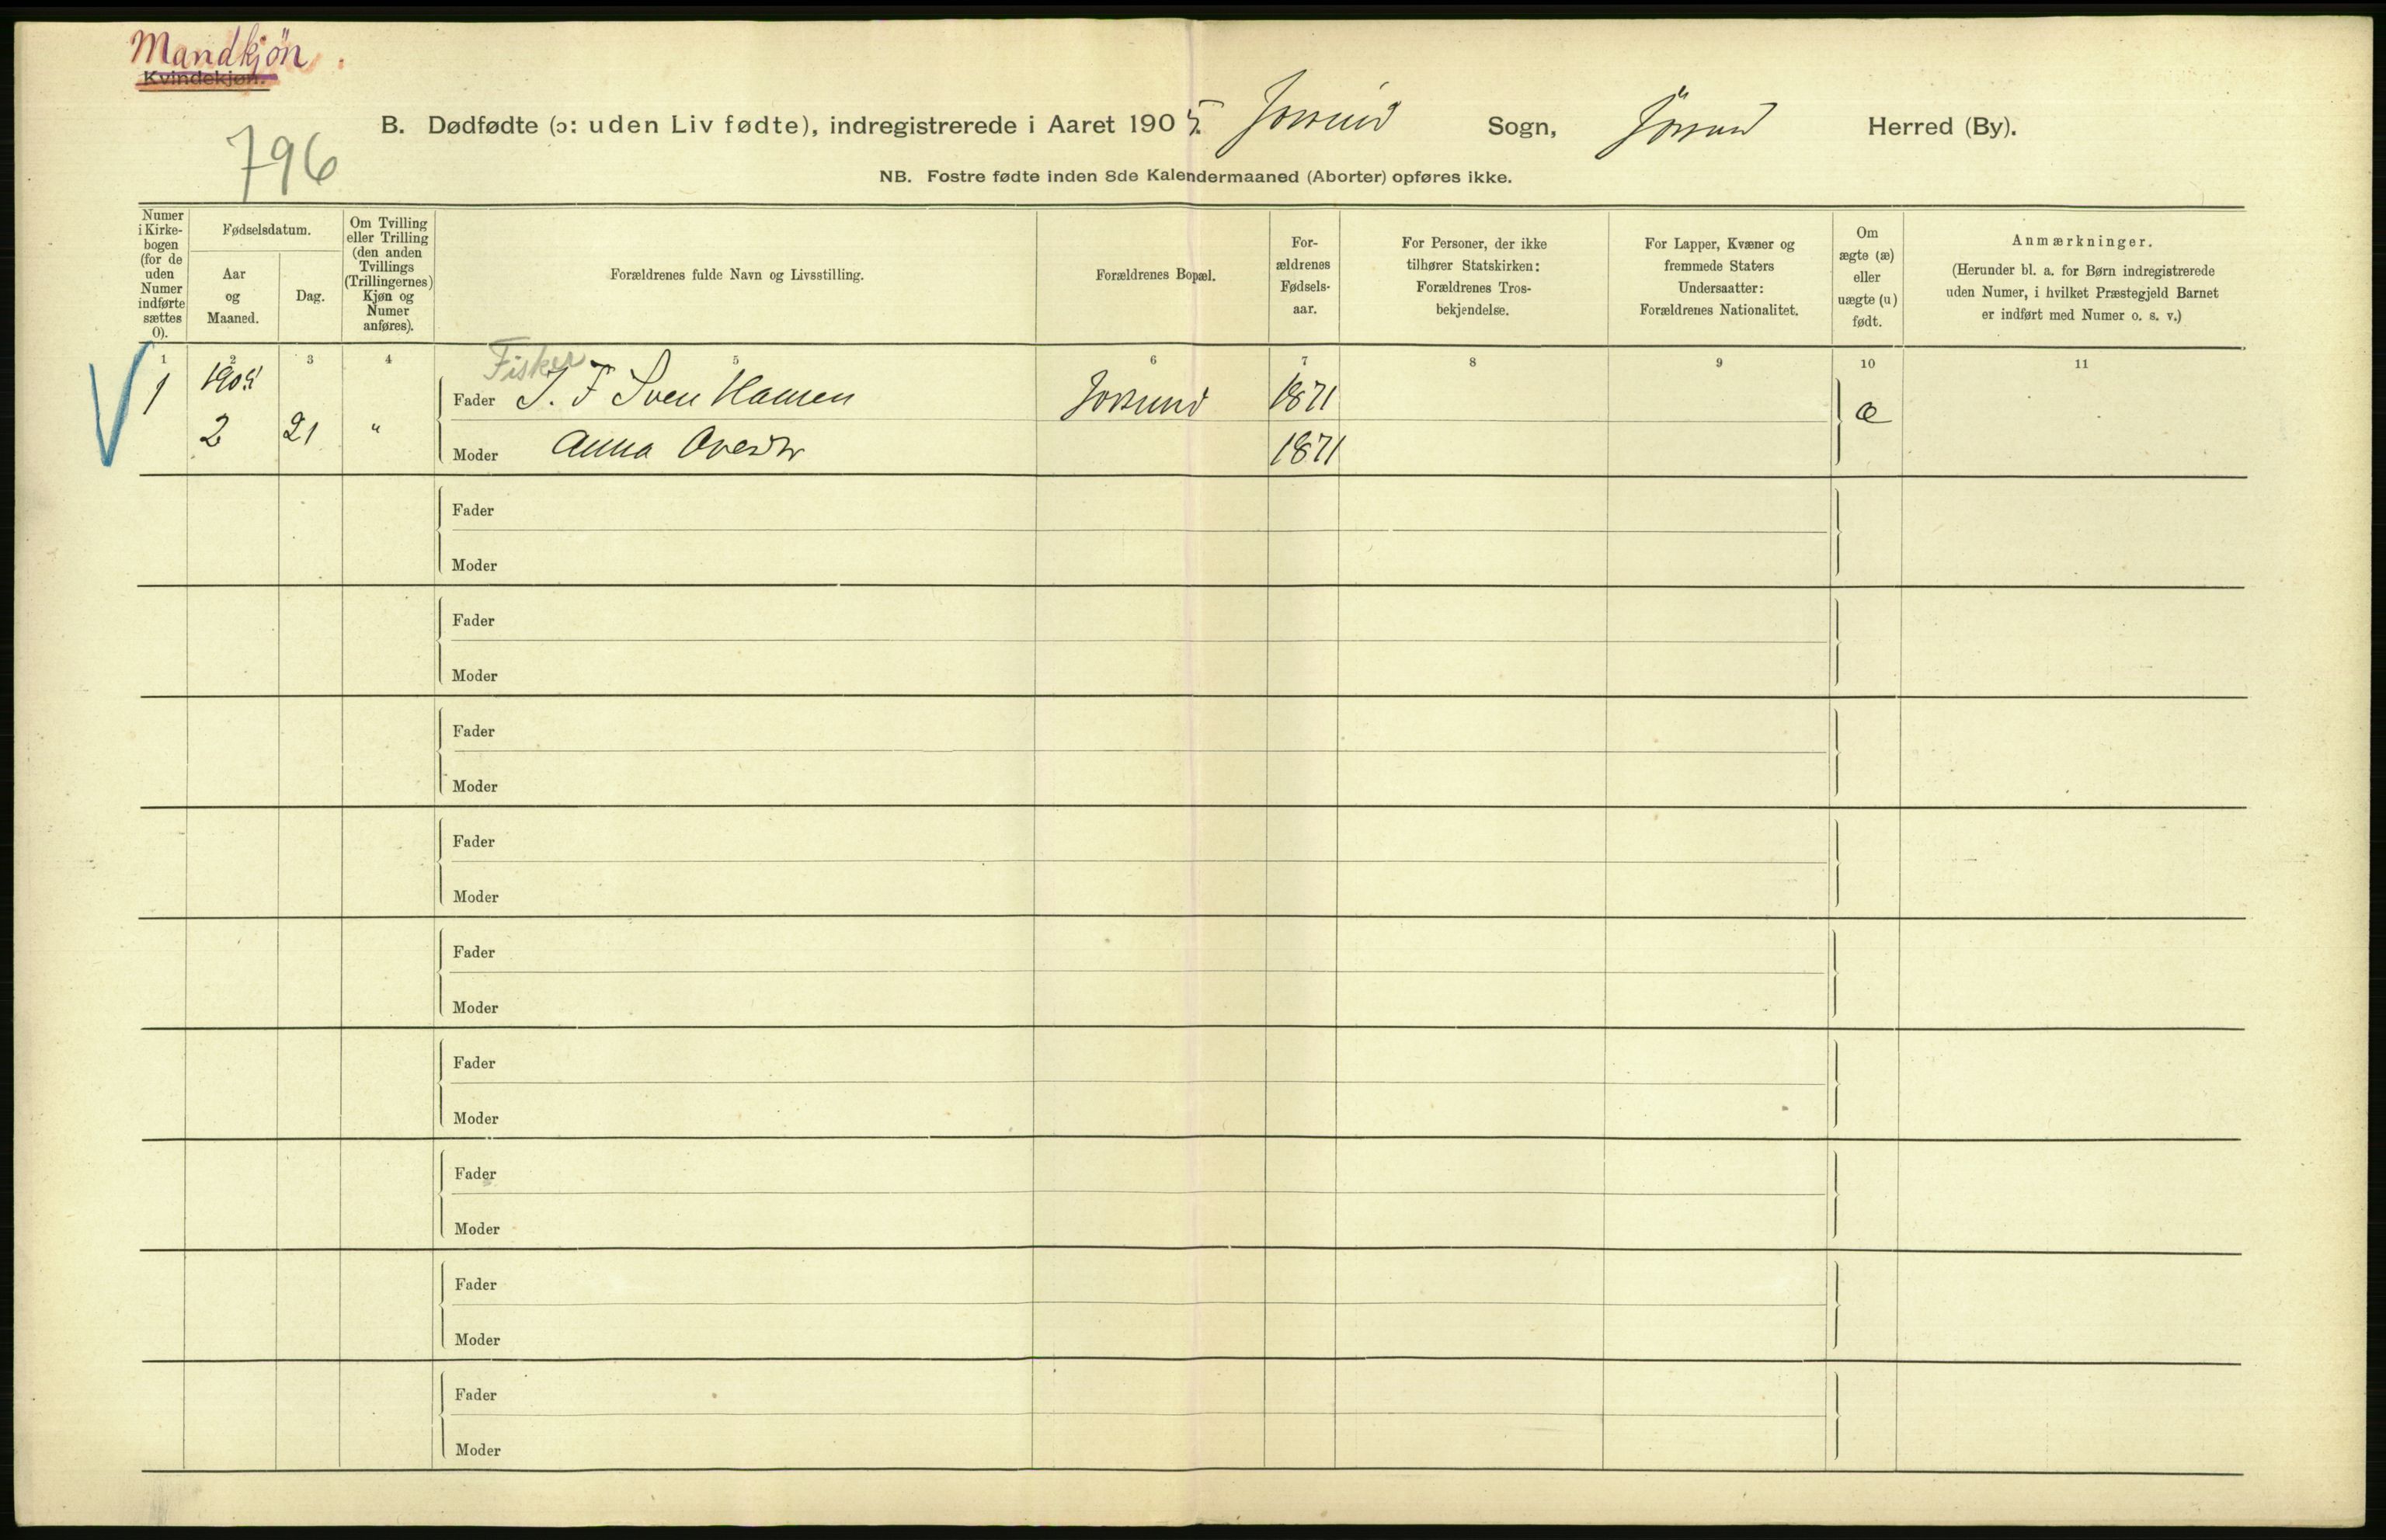 Mandkjøn.
Kvindekjøn.
796
B. Dødfødte (ɔ: uden Liv fødte), indregistrerede i Aaret 1905. Jossund Sogn, Jössund Herred (By).
NB. Fostre fødte inden 8de Kalendermaaned (Aborter) opføres ikke.
Numer i Kirke-bogen (for de uden Numer indførte sættes 0).
Fødselsdatum.
Aar og Maaned.
Dag.
Om Tvilling eller Trilling (den anden Tvillings (Trillingernes) Kjøn og Numer anføres).
Forældrenes fulde Navn og Livsstilling.
Forældrenes Bopæl.
For-ældrenes Fødsels-aar.
For Personer, der ikke tilhører Statskirken: Forældrenes Tros-bekjendelse.
For Lapper, Kvæner og fremmede Staters Undersaatter: Forældrenes Nationalitet.
Om ægte (æ) eller uægte (u) født.
Anmærkninger.
(Herunder bl. a. for Børn indregistrerede uden Numer, i hvilket Præstegjeld Barnet er indført med Numer o. s. v.)
1 2 3 4 5 6 7 8 9 10 11
Fisker
1 1905 Fader J. F Sven Hansen Jossund 1871 æ
2 21 " Moder Anna 1871
Fader
Moder
Fader
Moder
Fader
Moder
Fader
Moder
Fader
Moder
Fader
Moder
Fader
Moder
Fader
Moder
Fader
Moder